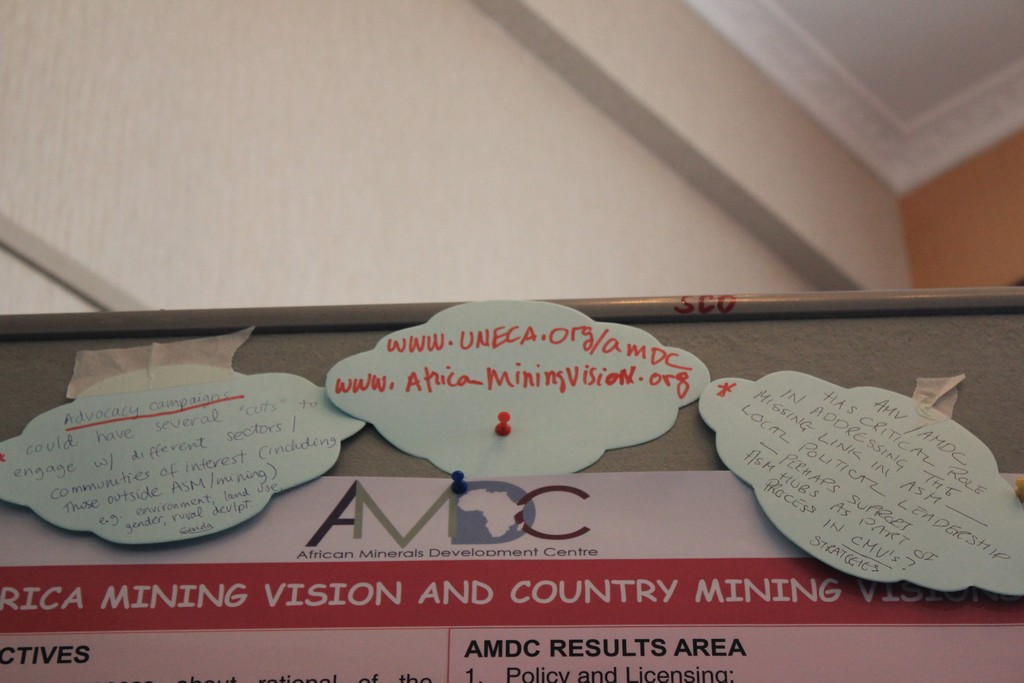 SCO
www.UNECA.org/amDC
www.AfricaMiningVision.org
Advocacy campaigns
* could have several "cuts" to
engage w/ different sectors/
communities of interest (including
those outside ASM/mining)
e.g. environment, land use,
gender, rural devlpt.
* AMV/AMDC
HAS CRITICAL ROLE
IN ADDRESSING THE
MISSING LINK IN ASM —
LOCAL POLITICAL LEADERSHIP
— PERHAPS SUPPORT
ASM HUBS AS PART OF
PROCESS IN CMV's?
STRATEGIES
AMDC
African Minerals Development Centre
RICA MINING VISION AND COUNTRY MINING VISION
CTIVES
about rational of the
AMDC RESULTS AREA
1. Policy and Licensing: